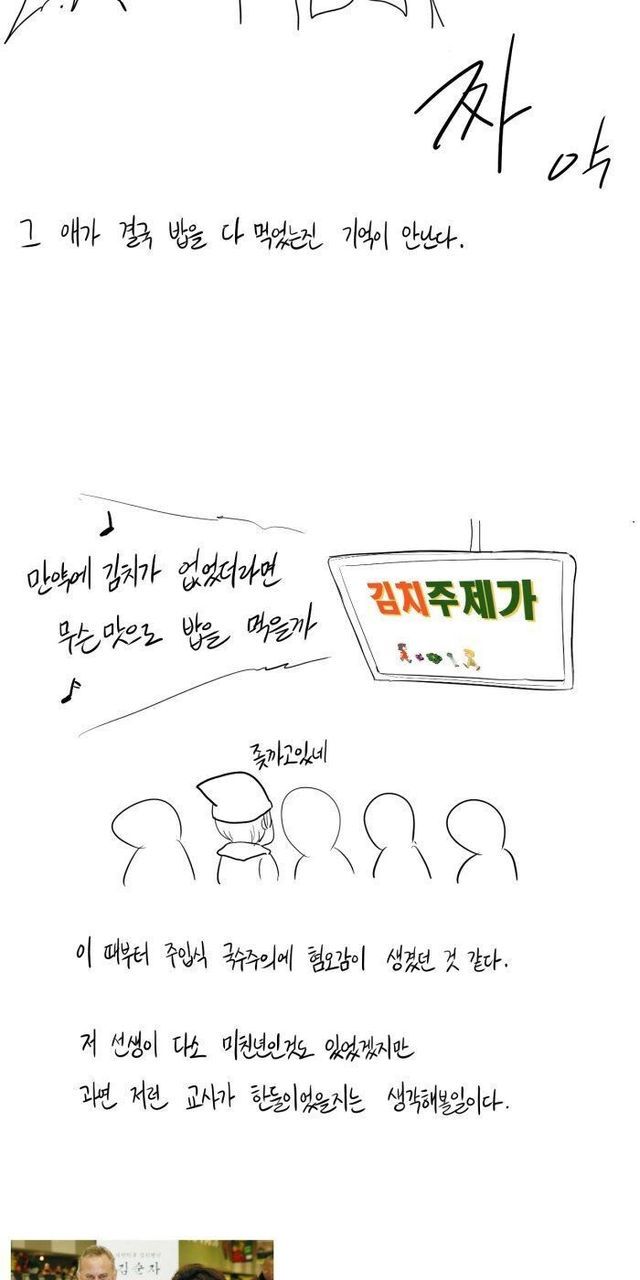 짜
악
그 애가 결국 밥을 다 먹었는진 기억이 안난다.
만약에 김치가 없었더라면
무슨 맛으로 밥을 먹을까
김치주제가
좆까고있네
이 때부터 주입식 국수주의에 혐오감이 생겼던 것 같다.
저 선생이 다소 미친년인것도 있었겠지만
과연 저런 교사가 한둘이었을지는 생각해볼일이다.
김순자